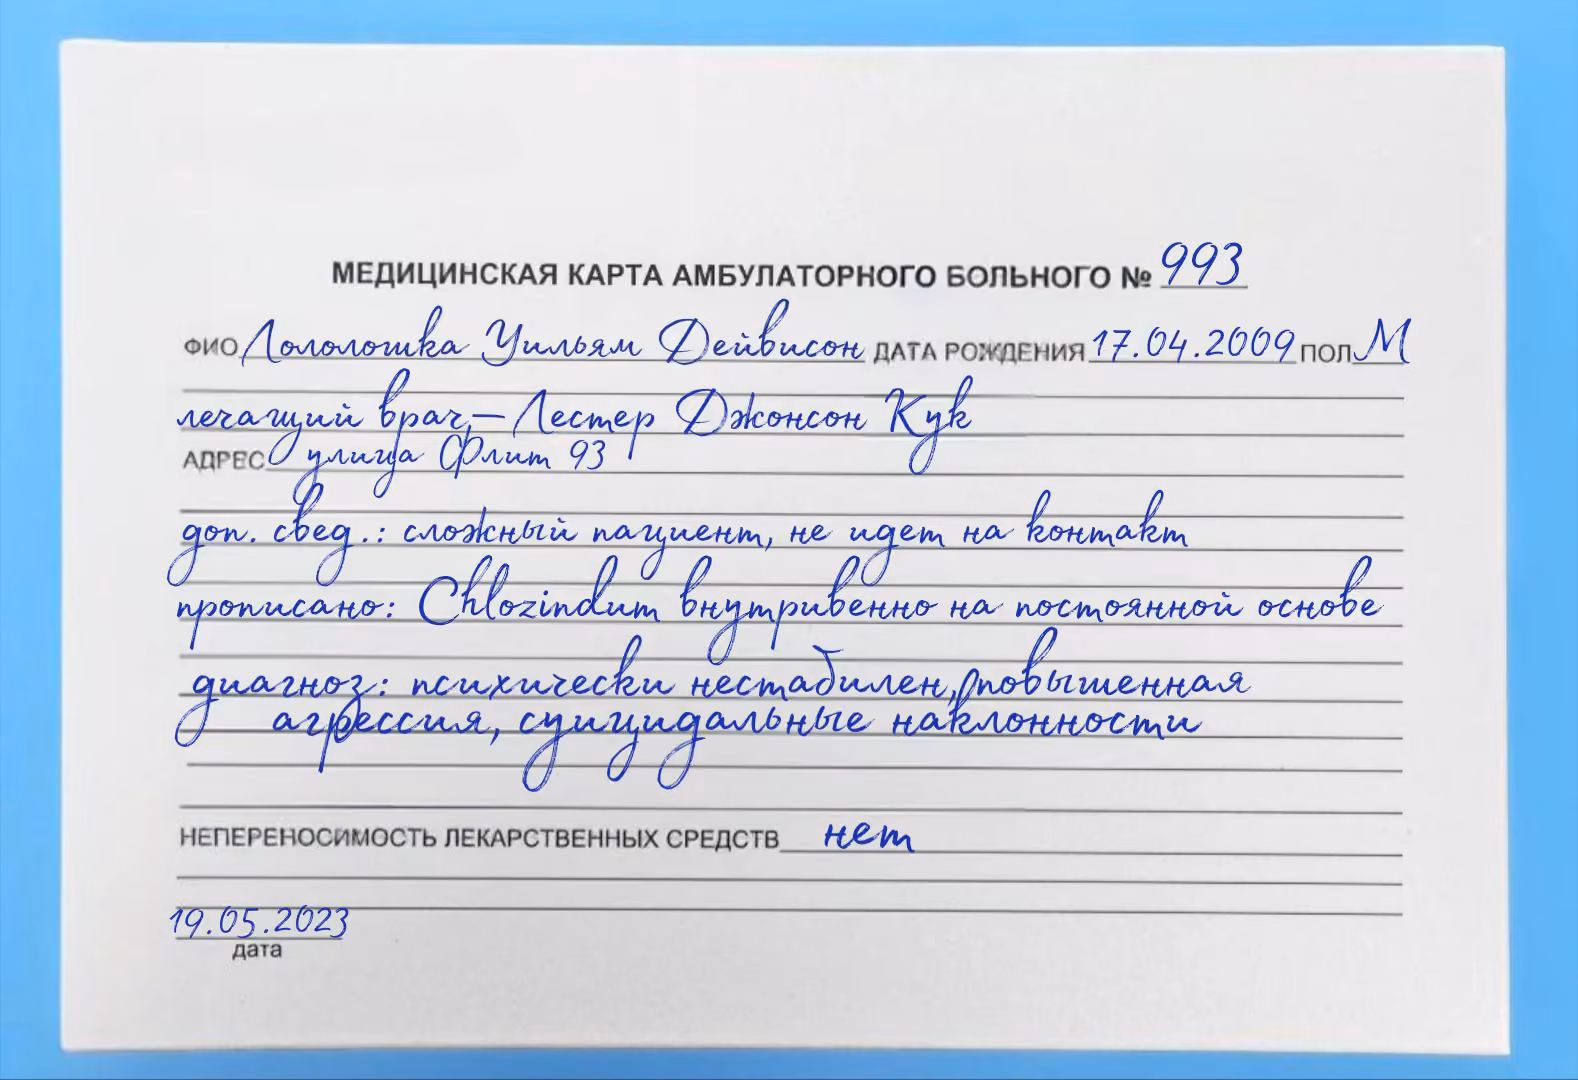 МЕДИЦИНСКАЯ КАРТА АМБУЛАТОРНОГО БОЛЬНОГО № 993
ФИО Лололошка Уильям Дейвисон ДАТА РОЖДЕНИЯ 17.04.2009 ПОЛ М
лечащий врач – Лестер Джонсон Кук
АДРЕС улица Флит 93
доп. свед.: сложный пациент, не идет на контакт
прописано: Chlozindum внутривенно на постоянной основе
диагноз: психически нестабилен, повышенная
агрессия, суицидальные наклонности
НЕПЕРЕНОСИМОСТЬ ЛЕКАРСТВЕННЫХ СРЕДСТВ нет
19.05.2023
дата